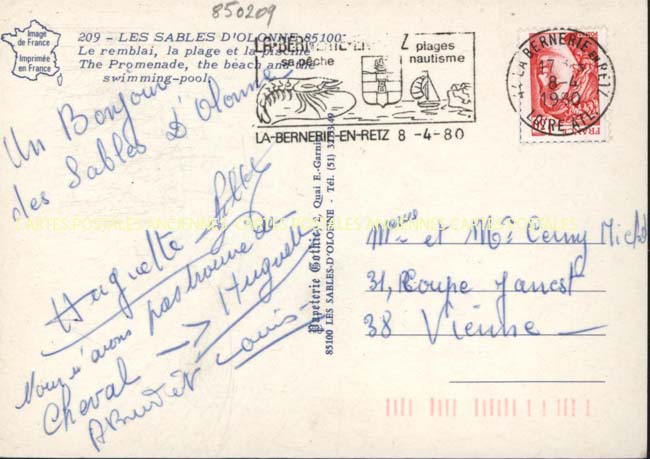 850209
Image
de France
Imprimée
en France
209 - LES SABLES D'OLONNE 85100
Le remblai, la plage et la piscine
The Promenade, the beach and the
swimming-pool
LA-BERNERIE-EN-RETZ
sa pêche
plages
nautisme
LA-BERNERIE-EN-RETZ 8 -4-80
44 LA BERNERIE EN RETZ
17
8-4
1980
LOIRE ATL.
FRANCE
Un Bonjour
des Sables D'Olonne
Huguette
Nous n'avons pas trouvé de
Cheval → Huguette
Louis
Papeterie Gothic, 2, Quai E.-Garnier
85100 LES SABLES-D'OLONNE - Tél. (51)
CARTES POSTALES ANCIENNES CARTES POSTALES ANCIENNES CARTES POSTALES
et Mr Cerny Michel
31, Coupe Jarret
38 Vienne